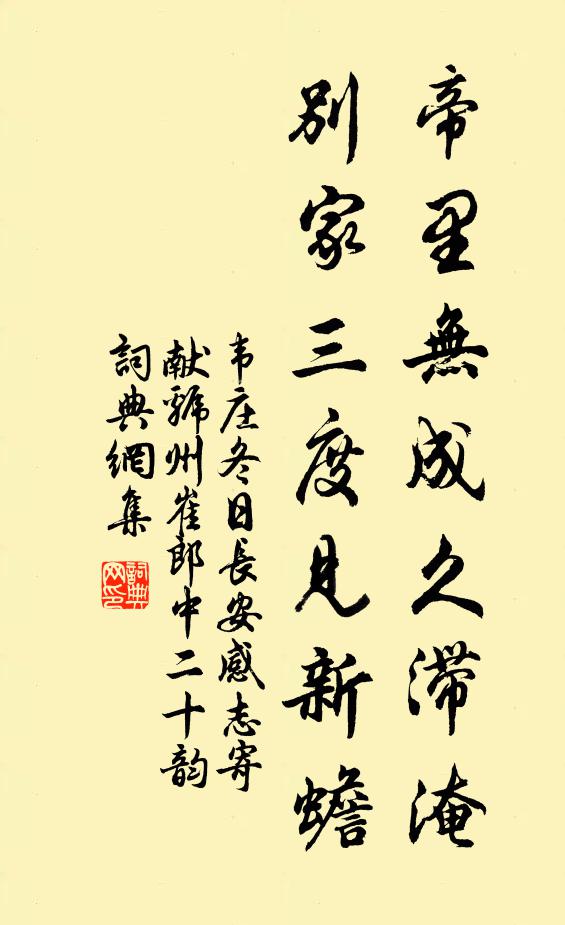 帝里無成久滞淹
別家三度見新蟾
韦庄冬日長安感志寄
献虢州崔郎中二十韵
詞典網集
詞典
网印